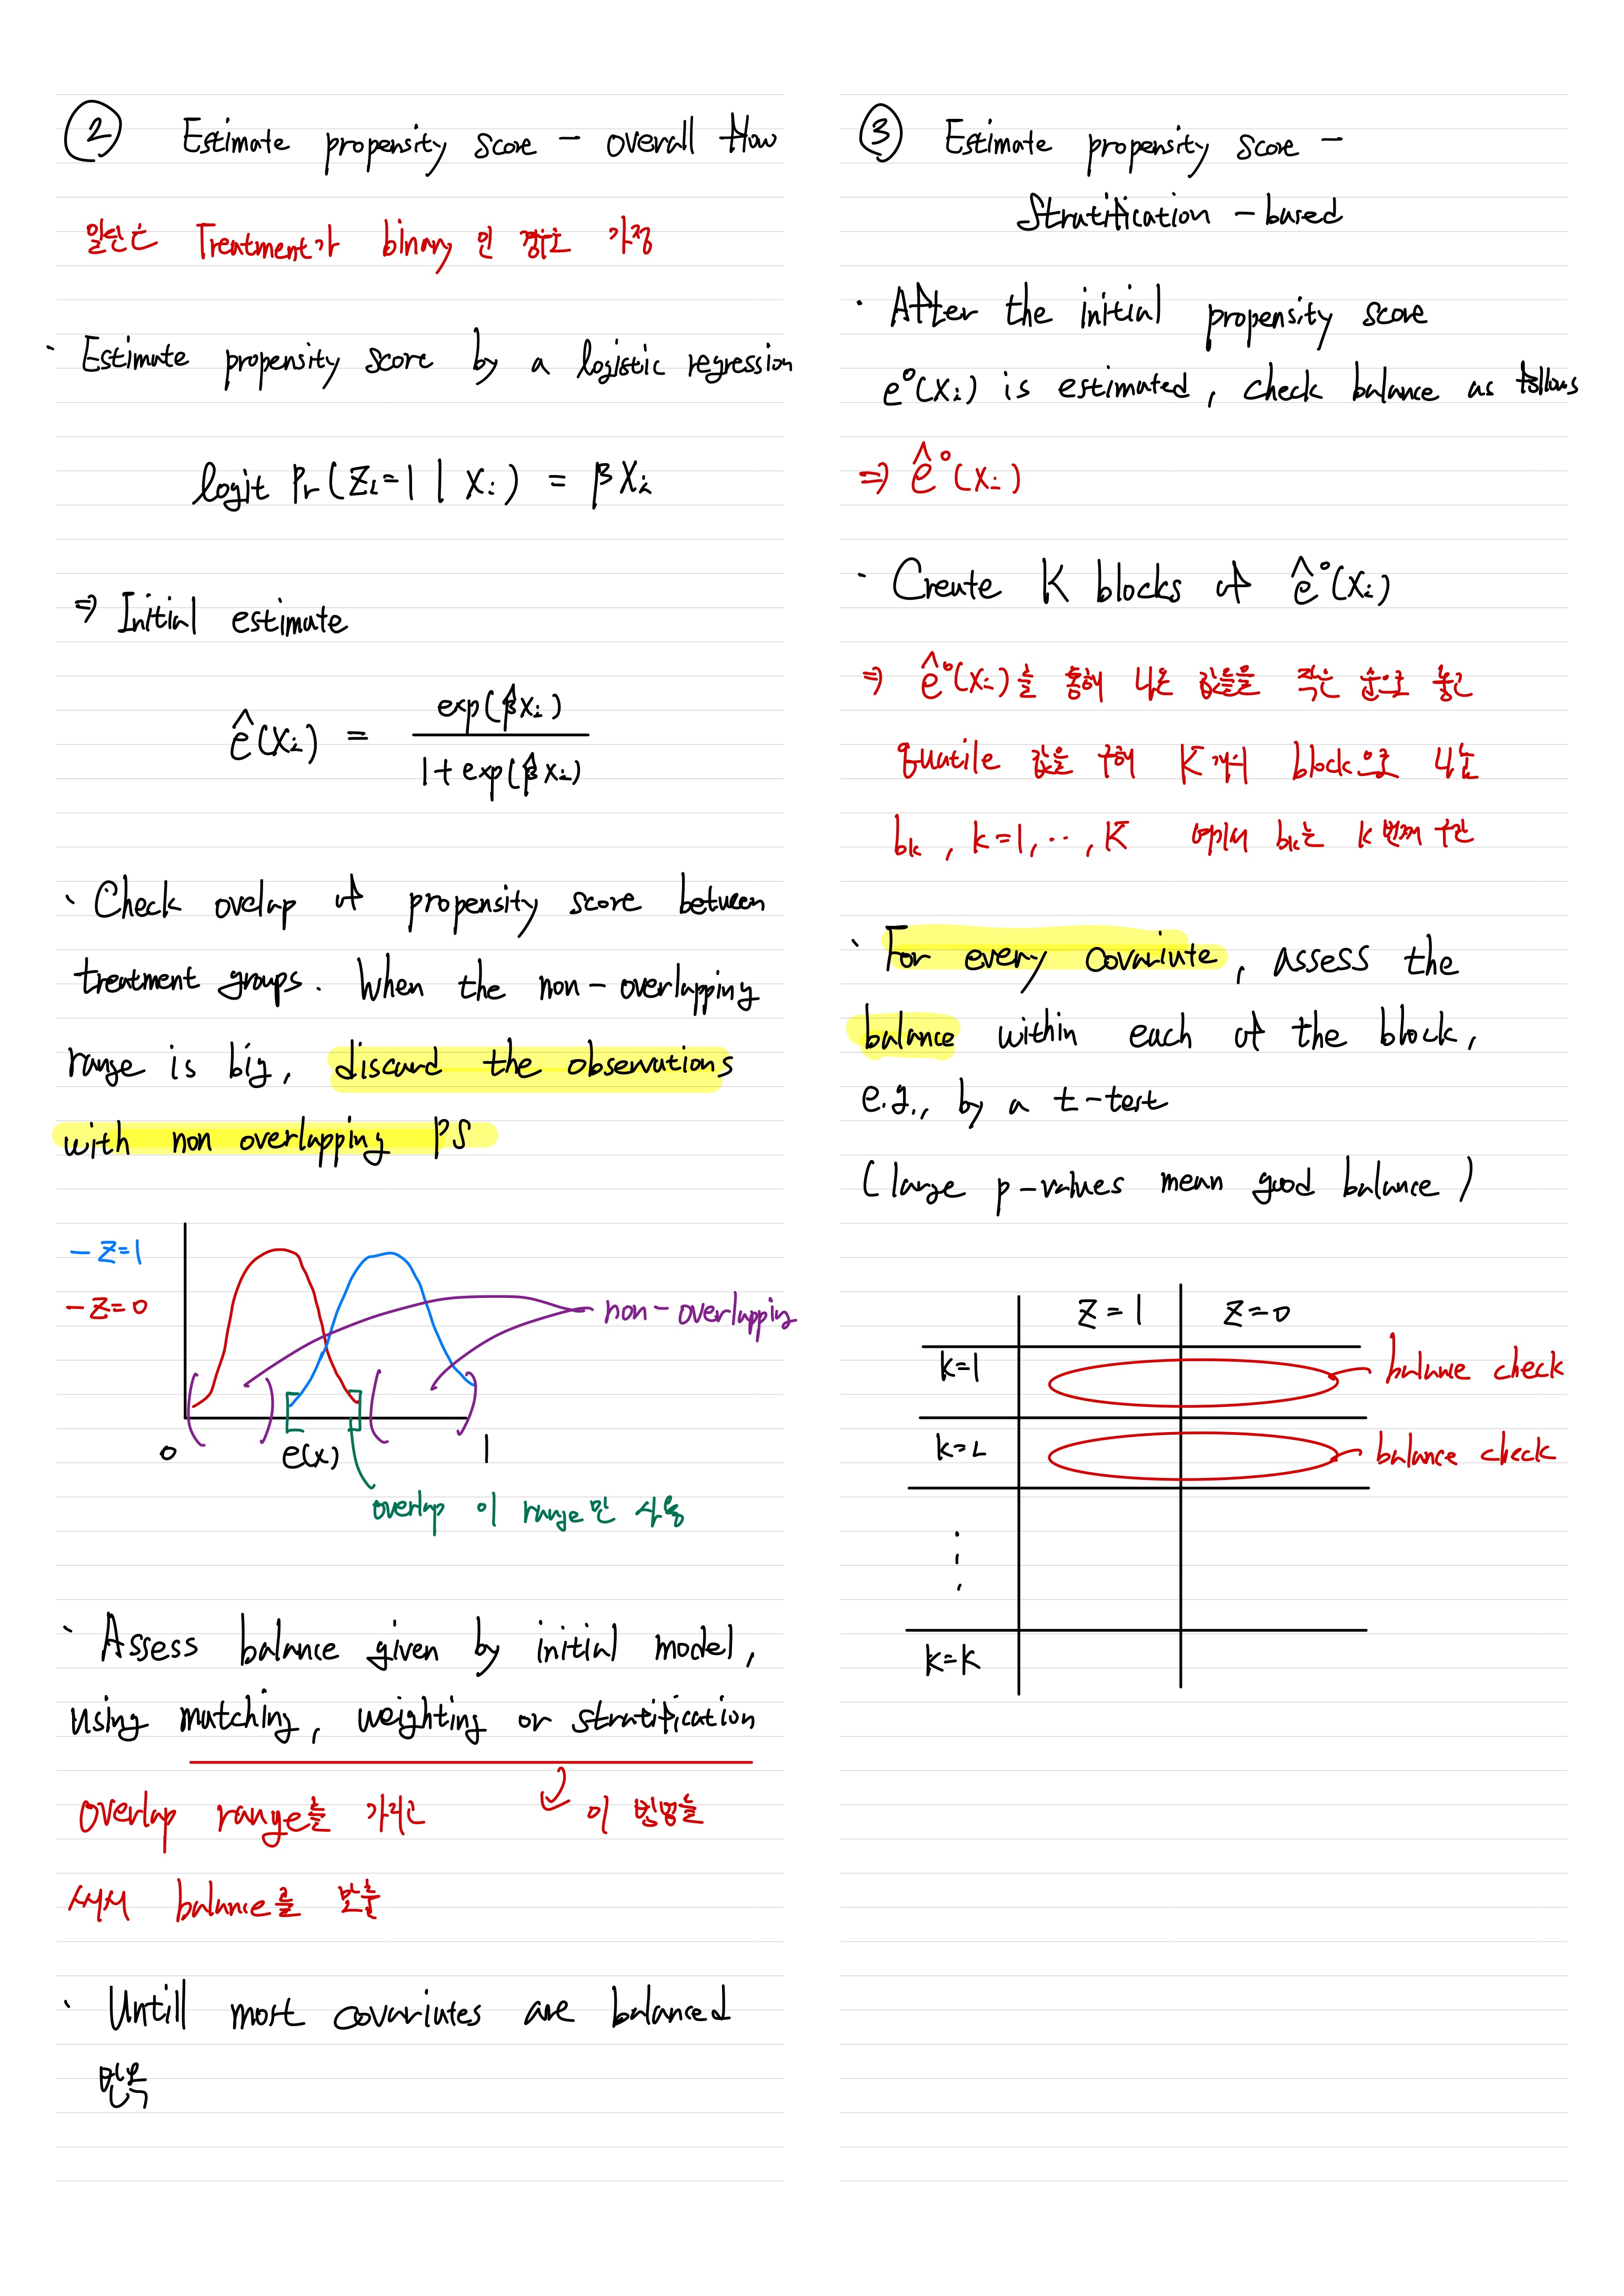 ② Estimate propensity score - overall flow
일단은 Treatment가 binary 인 경우로 가정
· Estimate propensity score by a logistic regression
logit Pr(Zi=1 | Xi) = βXi
⇒ Initial estimate
ê(Xi) = exp(β̂Xi) / 1+exp(β̂Xi)
· Check ovelap of propensity score between
treatment groups. When the non-overlapping
range is big, discard the observations
with non overlapping PS
- Z=1
- Z=0
non-overlappin
0 e(x) 1
overlap 이 range만 사용
· Assess balance given by initial model,
using matching, weighting or stratification
overlap range를 가지고 이 방법들
써서 balance를 맞춤
· Untill most covariates are balanced
반복
③ Estimate propensity score -
Stratification - based
· After the initial propensity score
e⁰(Xi) is estimated, check balance as follows
⇒ ê⁰(Xi)
· Create K blocks of ê⁰(Xi)
⇒ ê⁰(Xi)를 통해 나온 값들을 작은 순으로 놓고
quatile 값을 구해 K개의 block으로 나눔
bk, k=1, ··, K 여기서 bk는 k번째 구간
· For every covariate, assess the
balance within each of the block,
e.g., by a t-test
(large p-values mean good balance)
Z=1 Z=0
k=1 balance check
k=2 balance check
⋮
k=K